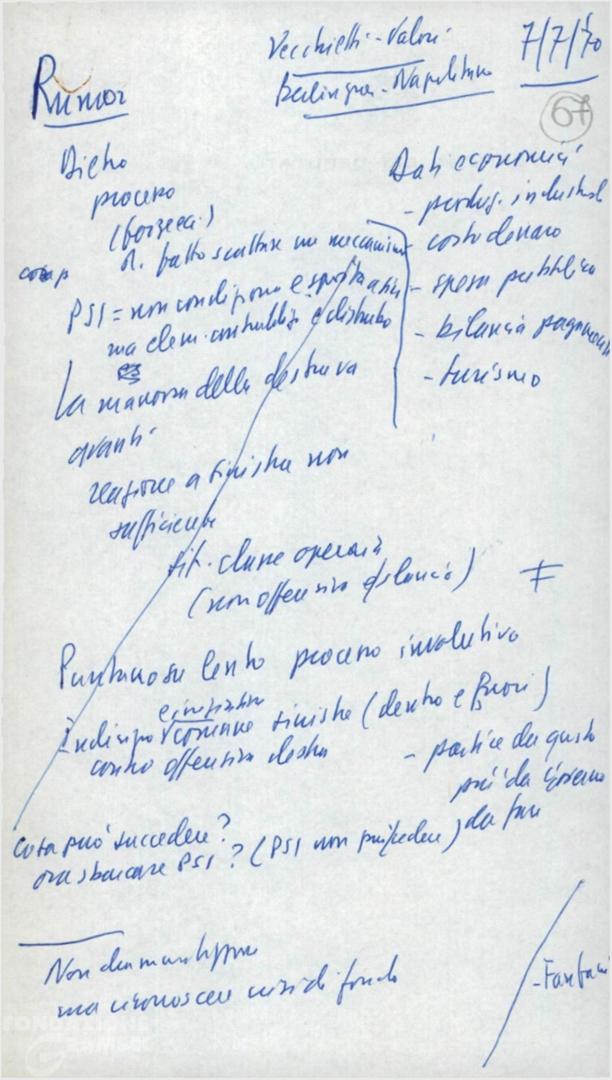 Vecchietti - Valori
7/7/70
Berlinguer - Napolitano
67
Rumor
Dietro
processo
(borghesi)
d. fatto scattare un meccanismo
cosa p
PSI = non condiziona e sposta a sin
ma elem. contraddiz. e disturbo
La manovra della destra va
avanti
reazione a sinistra non
sufficiente
sit. classe operaia
(non offensiva e slancio)
≠
Dati economici
- produz. industrial
- costo denaro
- spesa pubblica
- bilancia pagamenti
- turismo
Puntano su lento processo involutivo
e iniziativa
Indisp. comune sinistre (dentro e fuori)
contro offensiva destra
- partire da questo
più da Governo
da fare
cosa può succedere?
ora sbarcare PSI? (PSI non può cedere)
Non drammatizzare
ma riconoscere crisi di fondo
- Fanfani
FONDAZIONE
GRAMSCI